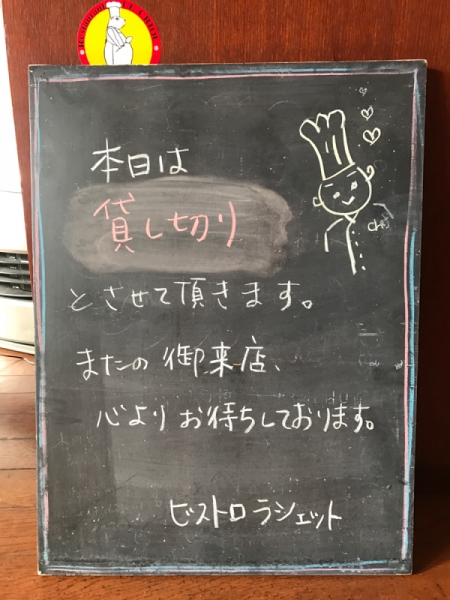 本日は
貸し切り
とさせて頂きます。
またの御来店、
心よりお待ちしております。
ビストロ ラシェット